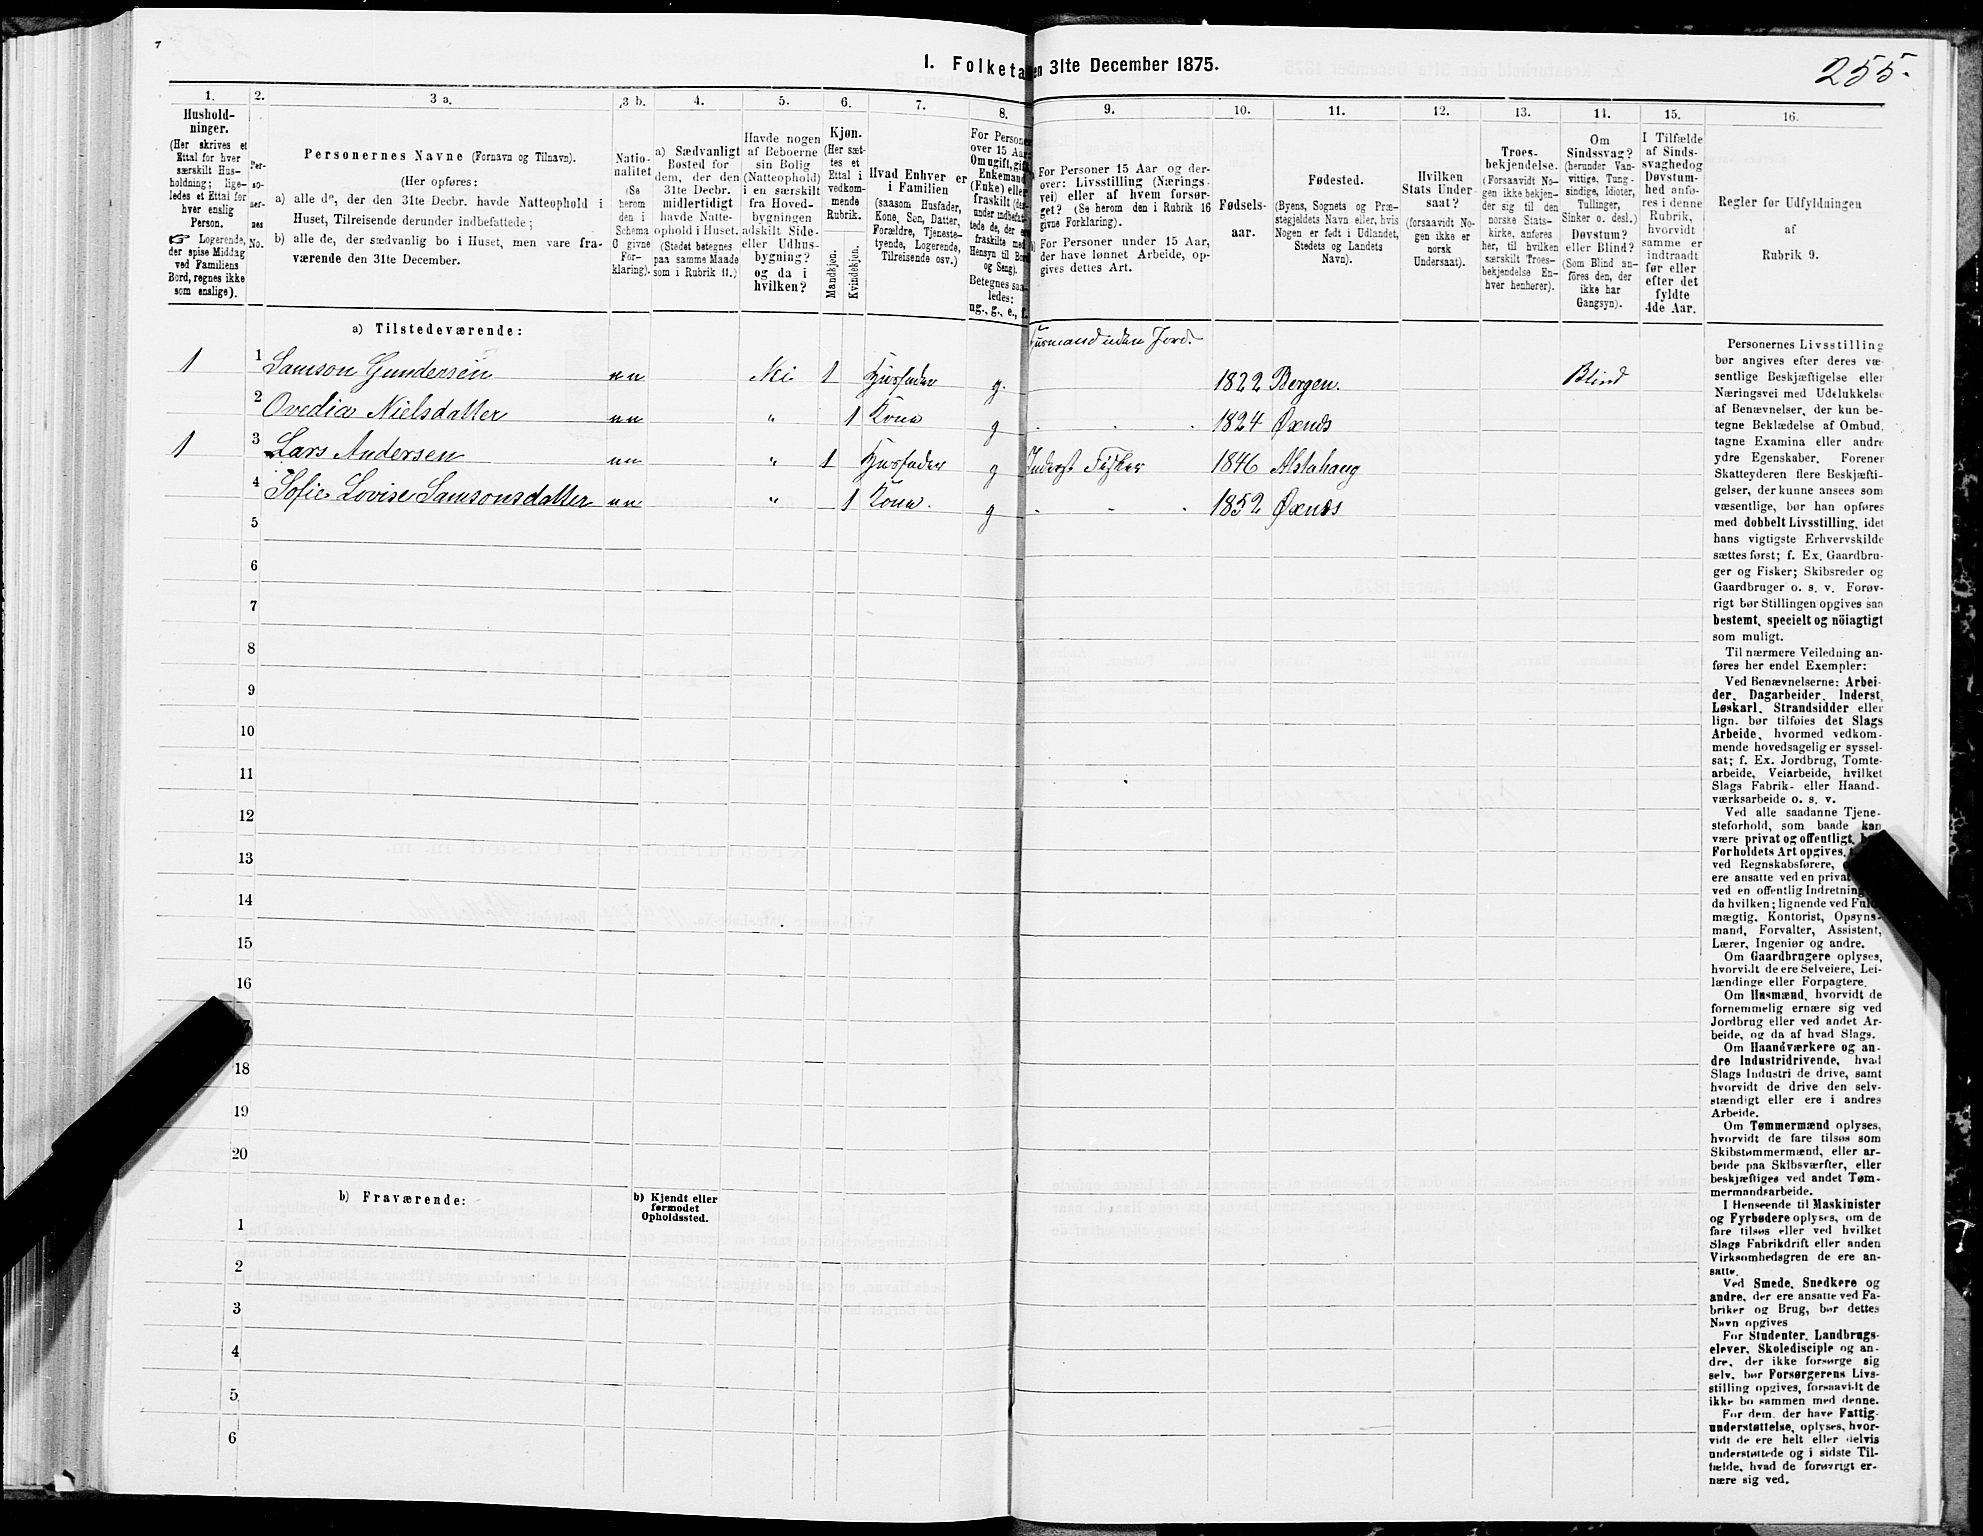 7
I. Folketa en 31te December 1875.
255.
1. 2. 3 a. 3 b. 4. 5. 6. 7. 8. 9. 10. 11. 12. 13. 14. 15. 16.
Hushold-
ninger.
(Her skrives et
Ettal for hver
særskilt Hus-
holdning; lige-
ledes et Ettal for
hver enslig
Person.
☞ Logerende,
der spise Middag
ved Familiens
Bord, regnes ikke
som enslige).
Per-
so-
ner-
nes
No.
Personernes Navne (Fornavn og Tilnavn).
(Her opføres:
a) alle de, der den 31te Decbr. havde Natteophold i
Huset, Tilreisende derunder indbefattede;
b) alle de, der sædvanlig bo i Huset, men vare fra-
værende den 31te December.
Natio-
nalitet
(Se
herom
den i
Schema
O givne
For-
klaring).
a) Sædvanligt
Bosted for
dem, der den
31te Decbr.
midlertidigt
havde Natte-
ophold i Huset.
(Stedet betegnes
paa samme Maade
som i Rubrik 11.)
Havde nogen
af Beboerne
sin Bolig
(Natteophold)
i en særskilt
fra Hoved-
bygningen
adskilt Side-
eller Udhus-
bygning?
og da i
hvilken?
Kjøn.
(Her sæt-
tes et
Ettal i
vedkom-
mende
Rubrik.
Mandkjøn.
Kvindekjøn.
Hvad Enhver er
i Familien
(saasom Husfader,
Kone, Søn, Datter,
Forældre, Tjeneste-
tyende, Logerende,
Tilreisende osv.)
For Personer
over 15 Aar
Om ugift, gift,
Enkemand
(Enke) eller
fraskilt (der-
under indbefat-
tede de, der ere
fraskilte med
Hensyn til Bord
og Seng).
Betegnes saa-
ledes:
ug., g., e., f.
a) For Personer 15 Aar og der-
over: Livsstilling (Nærings-
vei) eller af hvem forsør-
get? (Se herom den i Rubrik 16
givne Forklaring).
b) For Personer under 15 Aar,
der have lønnet Arbeide, op-
gives dettes Art.
Fødsels-
aar.
Fødested.
(Byens, Sognets og Præ-
stegjeldets Navn eller, hvis
Nogen er født i Udlandet,
Stedets og Landets
Navn).
Hvilken
Stats Under-
saat?
(forsaavidt No-
gen ikke er
norsk
Undersaat).
Troes-
bekjendelse.
(Forsaavidt No-
gen ikke bekjen-
der sig til den
norske Stats-
kirke, anføres
her, til hvilken
særskilt Troes-
bekjendelse En-
hver henhører).
Om
Sindssvag?
(herunder Van-
vittige, Tung-
sindige, Idioter,
Tullinger,
Sinker o. desl.)
Døvstum?
eller Blind?
(Som Blind an-
føres den, der
ikke har
Gangsyn).
I Tilfælde
af Sinds-
svaghed og
Døvstum-
hed anfø-
res i denne
Rubrik,
hvorvidt
samme er
indtraadt
før eller
efter det
fyldte
4de Aar.
Regler for Udfyldningen
af
Rubrik 9.
a) Tilstedeværende:
Husmand uden Jord.
1 1 Samson Gundersen nn Nei 1 Husfader g. 1822 Bergen. Blind
2 Ovedia Nielsdatter nn " 1 Kone g 1824 Øxnes
1 3 Lars Andersen nn " 1 Husfader g Inderst Fisker 1846 Alstahaug
4 Sofie Lovise Samsonsdatter nn " 1 Kone. g 1852 Øxnes
5
6
7
8
9
10
11
12
13
14
15
16
18
19
20
b) Fraværende:
b) Kjendt eller
formodet
Opholdssted.
1
2
3
4
5
6
Personernes Livsstilling
bør angives efter deres væ-
sentlige Beskjæftigelse eller
Næringsvei med Udelukkelse
af Benævnelser, der kun be-
tegne Beklædelse af Ombud,
tagne Examina eller andre
ydre Egenskaber. Forener
Skatteyderen flere Beskjæfti-
gelser, der kunne ansees som
væsentlige, bør han opføres
med dobbelt Livsstilling, idet
hans vigtigste Erhvervskilde
sættes først; f. Ex. Gaardbru-
ger og Fisker; Skibsreder og
Gaardbruger o. s. v. Forøv-
rigt bør Stillingen opgives saa
bestemt, specielt og nöiagtigt
som muligt.
Til nærmere Veiledning an-
føres her endel Exempler:
Ved Benævnelserne: Arbei-
der, Dagarbeider, Inderst,
Løskarl, Strandsidder eller
lign. bør tilføies det Slags
Arbeide, hvormed vedkom-
mende hovedsagelig er syssel-
sat; f. Ex. Jordbrug, Tomte-
arbeide, Veiarbeide, hvilket
Slags Fabrik- eller Haand-
værksarbeide o. s. v.
Ved alle saadanne Tjene-
steforhold, som baade kan
være privat og offentligt,
Forholdets Art opgives,
ved Regnskabsførere,
ere ansatte ved en privat
ved en offentlig Indretning
da hvilken; lignende ved Fuld-
mægtig, Kontorist, Opsyns-
mand, Forvalter, Assistent,
Lærer, Ingeniør og andre.
Om Gaardbrugere oplyses,
hvorvidt de ere Selveiere, Lei-
lændinge eller Forpagtere.
Om Husmænd, hvorvidt de
fornemmelig ernære sig ved
Jordbrug eller ved andet Ar-
beide, og da af hvad Slags.
Om Haandværkere og an-
dre Industridrivende, hvad
Slags Industri de drive, samt
hvorvidt de drive den selv-
stændigt eller ere i andres
Arbeide.
Om Tømmermænd oplyses,
hvorvidt de fare tilsøs som
Skibstømmermænd, eller ar-
beide paa Skibsværfter, eller
beskjæftiges ved andet Tøm-
mermandsarbeide.
I Henseende til Maskinister
og Fyrbødere oplyses, om de
fare tilsøs eller ved hvilket
Slags Fabrikdrift eller anden
Virksomhedsgren de ere an-
satte.
Ved Smede, Snedkere og
andre, der ere ansatte ved Fa-
briker og Brug, bør dettes
Navn opgives
For Studenter, Landbrugs-
elever, Skoledisciple og an-
dre, der ikke forsørge sig
selv, bør Forsørgerens Livs-
stilling opgives, forsaavidt de
ikke bo sammen med denne.
For dem, der have Fattig-
understøttelse, oplyses, hvor-
vidt de ere helt eller delvis
understøttede og i sidste Til-
fælde, hvad de forøvrigt er-
nære sig ved.